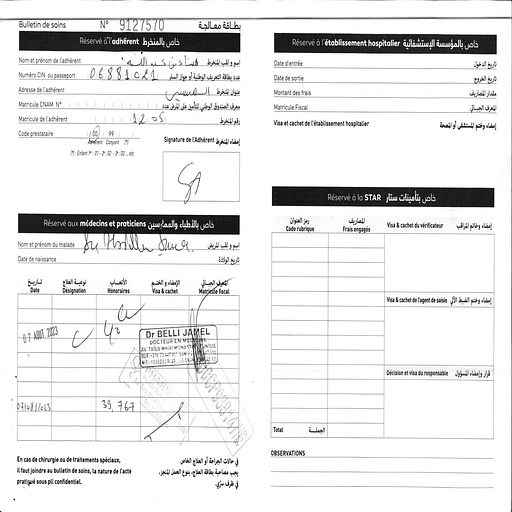 Bulletin de soins N° 9127570 بطاقة معالجة
Réservé à l'adhérent خاص بالمنخرط
Nom et prénom de l'adhérent اسم و لقب المنخرط
Numéro CIN ou passeport 06881021 عدد بطاقة التعريف الوطنية أو جواز السفر
Adresse de l'adhérent عنوان المنخرط
Matricule CNAM N° معرف الصندوق الوطني للتأمين على المرض عدد
Matricule de l'adhérent 1205 رقم المنخرط
Code prestataire 00 99
Adhérent Conjoint (*)
(*) : Enfant 1er : 01 - 2e : 02 - 3e : 03 ... etc
Signature de l'Adhérent إمضاء المنخرط
Réservé aux médecins et praticiens خاص بالأطباء والممارسين
Nom et prénom du malade اسم و لقب المريض
Date de naissance تاريخ الولادة
تاريخ نوعية العلاج الأتعاب الإمضاء و الختم المعرف الجبائي
Date Désignation Honoraires Visa & cachet Matricule fiscal
07 AOUT 2023 C 40
Dr BELLI JAMEL
DOCTEUR EN MEDECINE
07/08/2023 39,767
En cas de chirurgie ou de traitements spéciaux,
il faut joindre au bulletin de soins, la nature de l'acte
pratiqué sous pli confidentiel.
في حالات الجراحة أو العلاج الخاص
يجب مصاحبة بطاقة العلاج، بنوع العمل المنجز،
في ظرف سري.
Réservé à l'établissement hospitalier خاص بالمؤسسة الإستشفائية
Date d'entrée تاريخ الدخول
Date de sortie تاريخ الخروج
Montant des frais مقدار المصاريف
Matricule Fiscal المعرف الجبائي
Visa et cachet de l'établissement hospitalier إمضاء وختم المستشفى أو المصحة
Réservé à la STAR خاص بتأمينات ستار
رمز العنوان المصاريف
Code rubrique Frais engagés Visa & cachet du vérificateur إمضاء وخاتم المراقب
Visa & cachet de l'agent de saisie إمضاء وختم الضبط الآلي
Décision et visa du responsable قرار وإمضاء المسؤول
Total الجملة
OBSERVATIONS